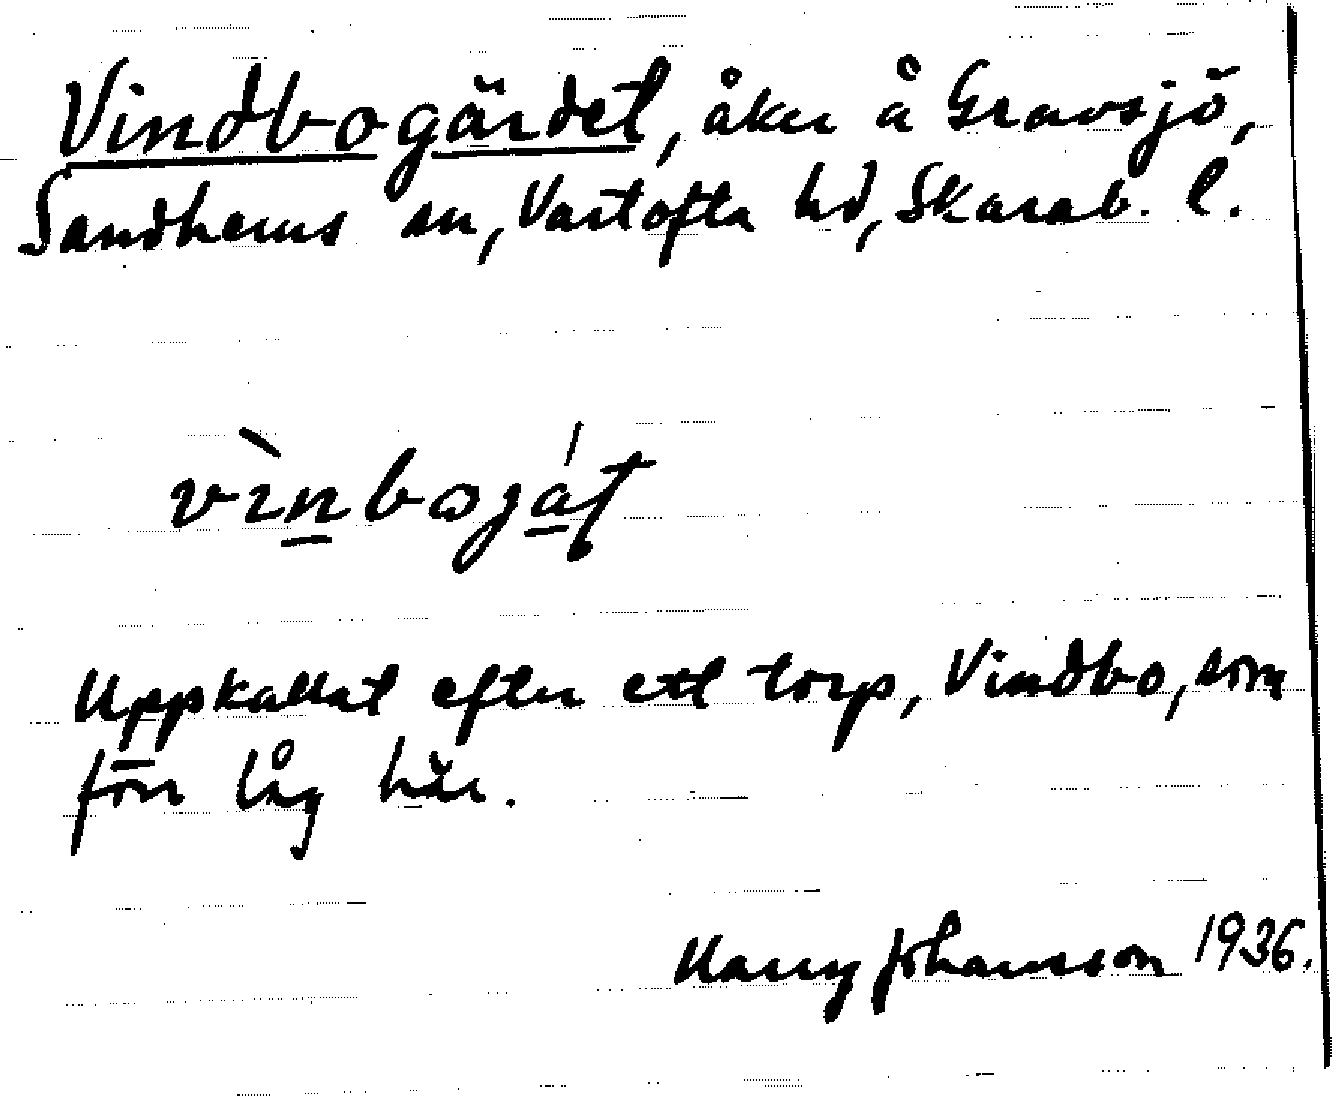 Vindbogärdet, åker å Gravsjö,
Sandhems sn, Vartofta hd, Skarab. l.
vìnbogát
Uppkallat efter ett torp, Vindbo, som
förr låg här.
Harry Johansson 1936.